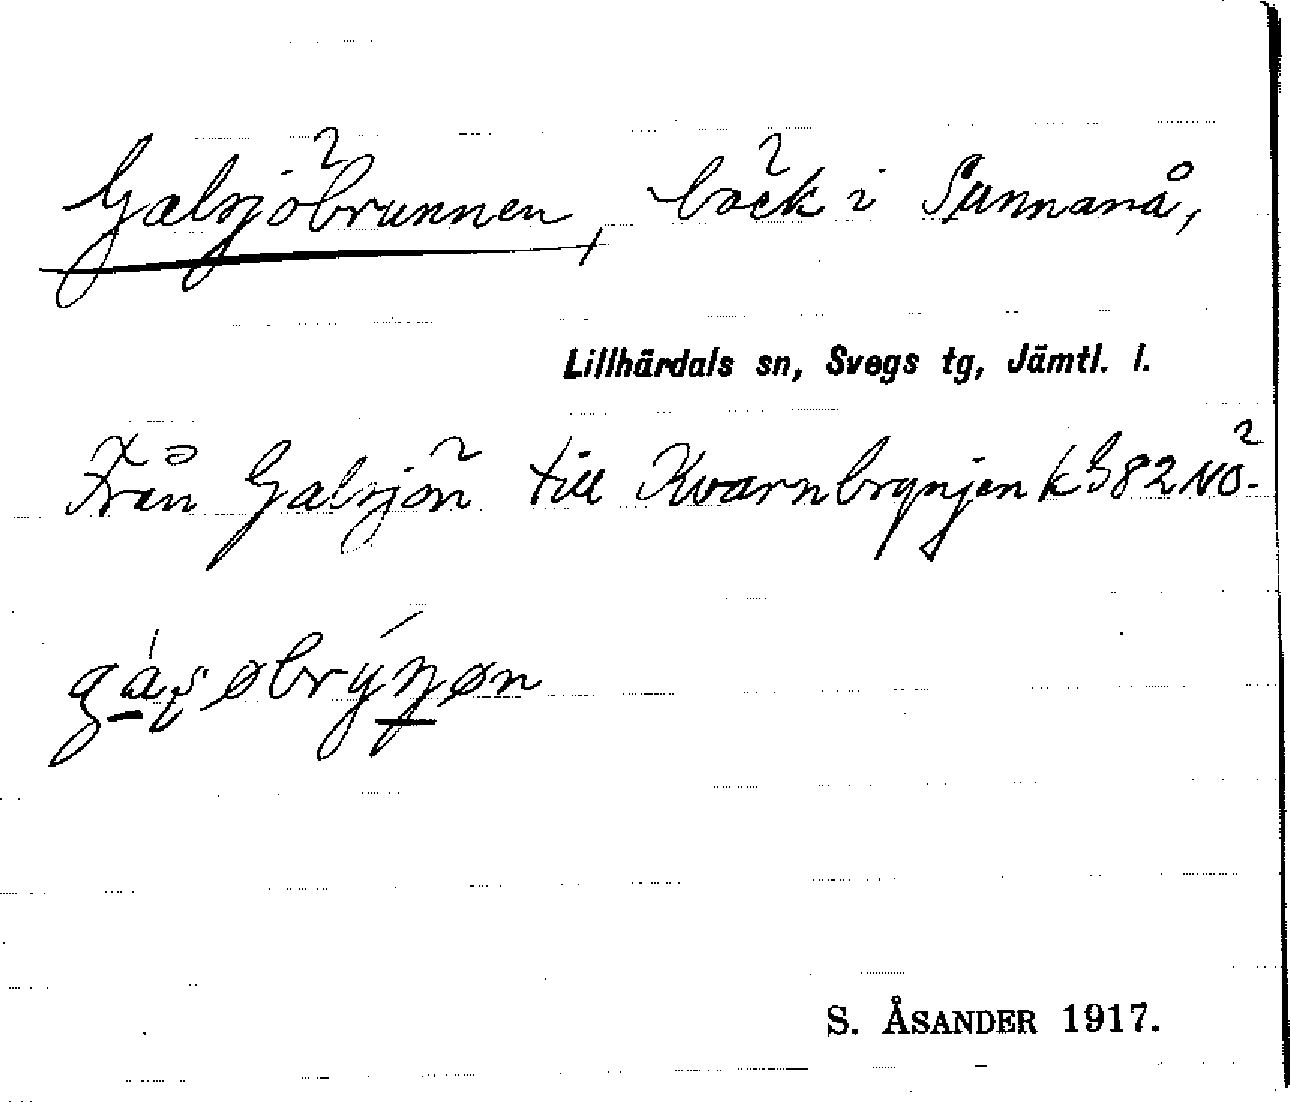 Galsjöbrunnen, bäck i Sunnanå,
Lillhärdals sn, Svegs tg, Jämtl. l.
Från Galsjön till Kvarnbrynjen K382NÖ.
S. ÅSANDER 1917.